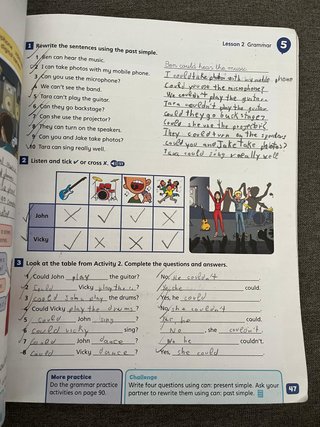 Lesson 2 Grammar 5
1 Rewrite the sentences using the past simple.
1 Ben can hear the music.
2 I can take photos with my mobile phone.
3 Can you use the microphone?
4 We can't see the band.
5 Tara can't play the guitar.
6 Can they go backstage?
7 Can she use the projector?
8 They can turn on the speakers.
9 Can you and Jake take photos?
10 Tara can sing really well.
Ben could hear the music
I could take photos with my mobile phone
Could you use the microphone?
We couldn't
Tara couldn't play the guitar
Could they go backstage?
Could she use the projector?
They could turn on the speakers
Could you and Jake take photos?
Tara could sing really well
2 Listen and tick ✓ or cross X.
John X X ✓ X
Vicky ✓ X X ✓
3 Look at the table from Activity 2. Complete the questions and answers.
1 Could John play the guitar? No, he couldn't
2 Could Vicky play the could.
3 could John play the drums? Yes, he could
4 Could Vicky play the drums? No she couldn't
5 could John sing he could.
6 Could vicky sing? No, she couldn't
7 Could John dance? No he couldn't.
8 Could Vicky dance? Yes she could
More practice
Do the grammar practice
activities on page 90.
Challenge
Write four questions using can: present simple. Ask your
partner to rewrite them using can: past simple.
47